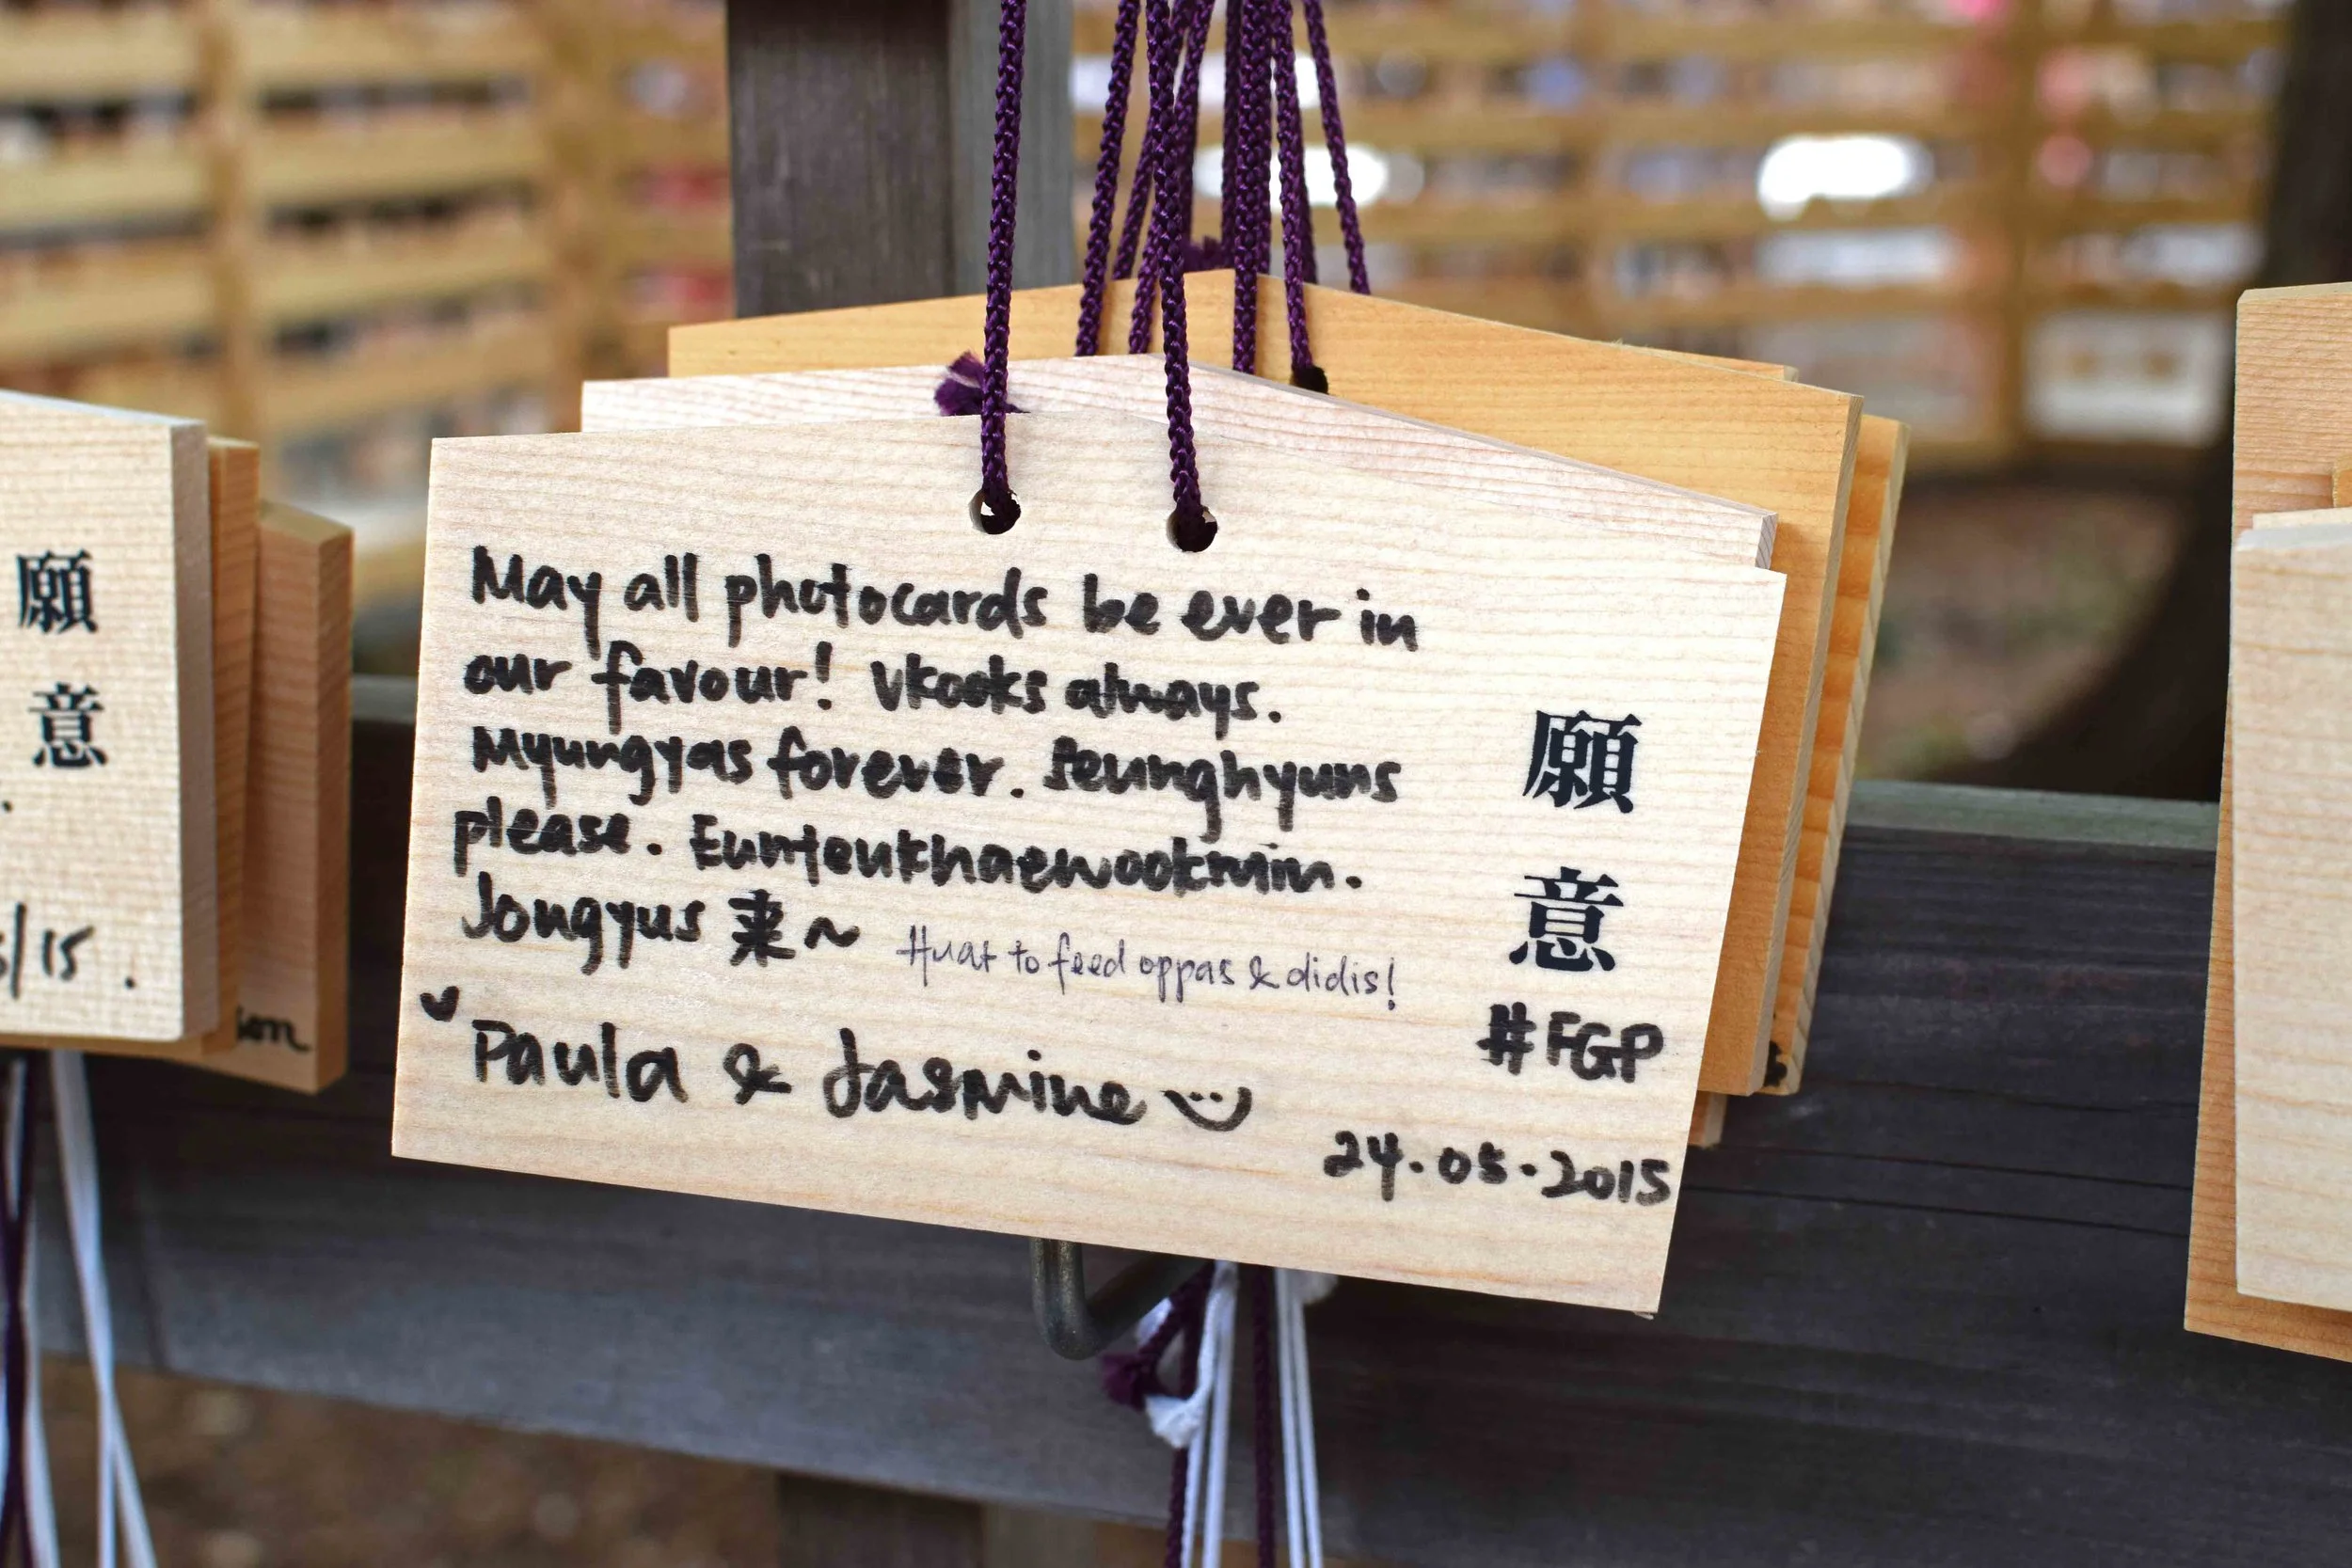 May all photocards be ever in
our favour! Vkooks always.
Myungyas forever. Seunghyuns
please. Eunteukhaewookmin.
Jongyus 来~ Huat to feed oppas & didis!
Paula & Jasmine
願意
#FGP
24.05.2015
願意
/15.
son